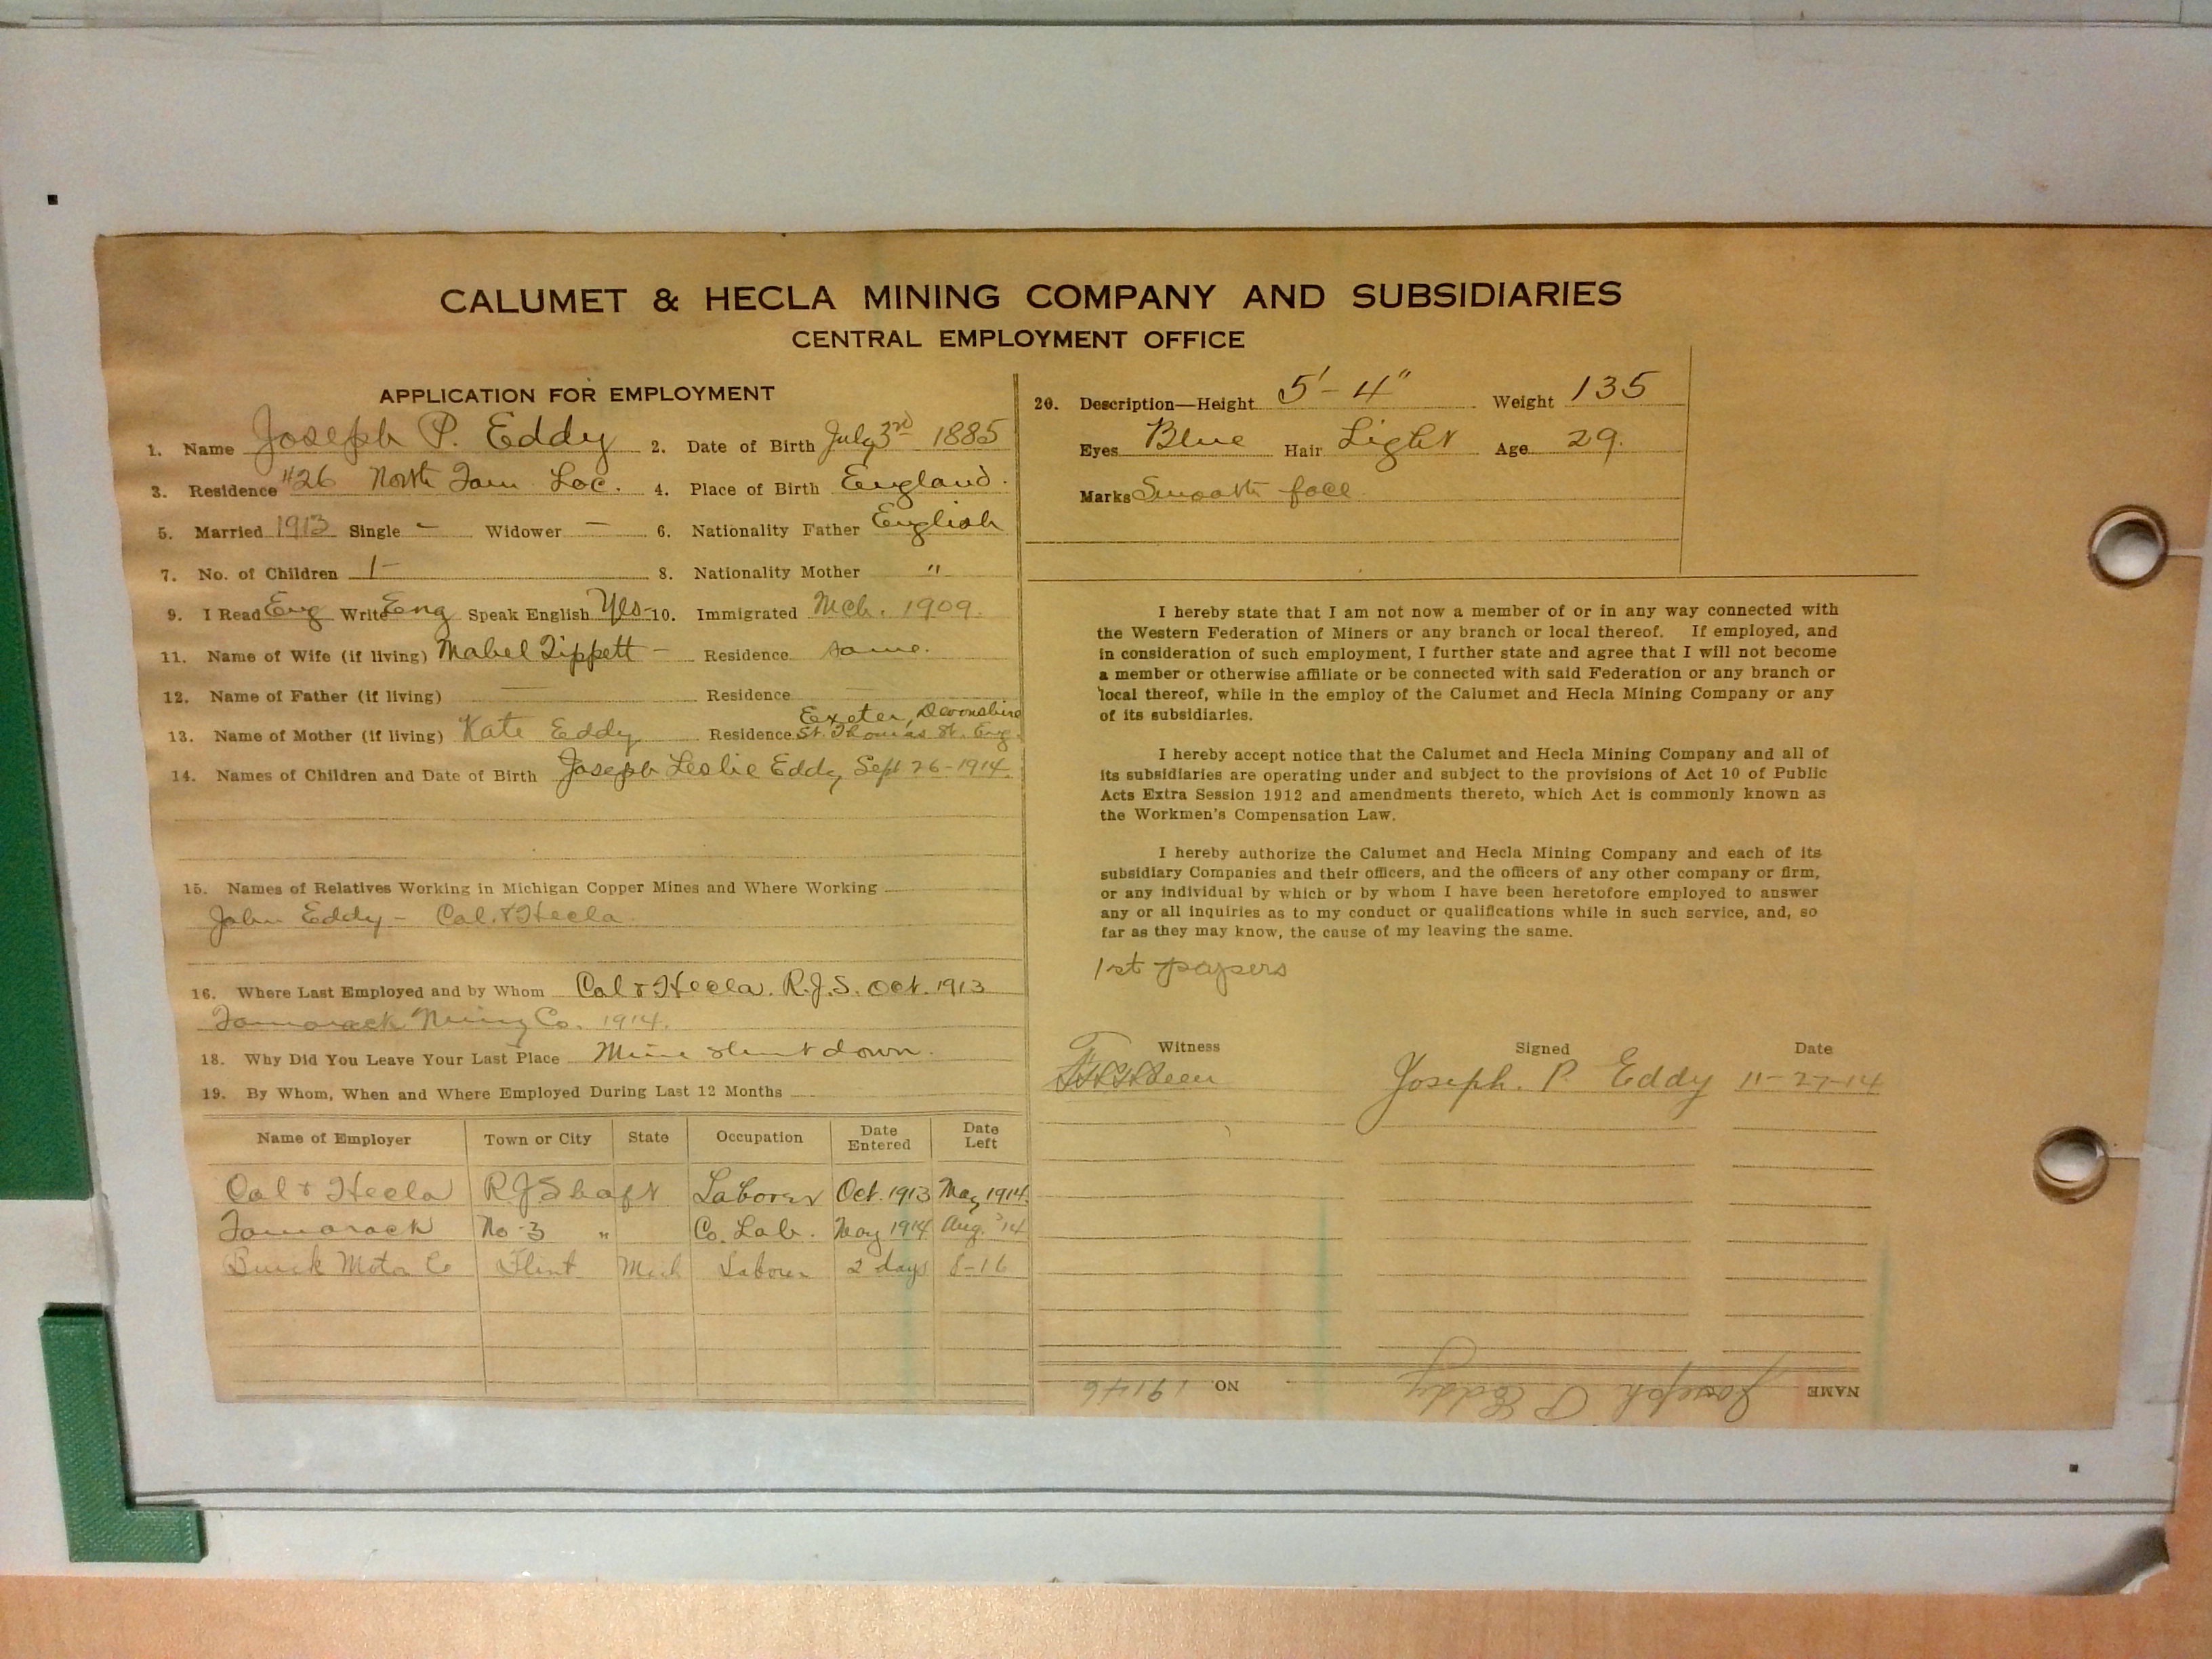 CALUMET & HECLA MINING COMPANY AND SUBSIDIARIES
CENTRAL EMPLOYMENT OFFICE
APPLICATION FOR EMPLOYMENT
1. Name Joseph P. Eddy 2. Date of Birth July 3rd 1885
3. Residence #26 North Tam Loc. 4. Place of Birth England.
5. Married 1913 Single - Widower - 6. Nationality Father English
7. No. of Children 1- 8. Nationality Mother "
9. I Read Eng Write Eng Speak English Yes- 10. Immigrated Mch. 1909.
11. Name of Wife (if living) Mabel Tippett - Residence same.
12. Name of Father (if living) — Residence —
Exeter, Devonshire
13. Name of Mother (if living) Kate Eddy Residence St. Thomas St. Eng.
14. Names of Children and Date of Birth Joseph Leslie Eddy Sept 26-1914.
15. Names of Relatives Working in Michigan Copper Mines and Where Working
John Eddy - Cal. & Hecla
16. Where Last Employed and by Whom Cal & Hecla. R.J.S. Oct. 1913
Tamarack Mining Co. 1914.
18. Why Did You Leave Your Last Place Mine shut down.
19. By Whom, When and Where Employed During Last 12 Months
Name of Employer Town or City State Occupation Date Entered Date Left
Cal & Hecla R J Shaft Laborer Oct. 1913 May 1914.
Tamarack No 3 " Co. Lab. May 1914 Aug. '14
Buick Motor Co Flint Mich Laborer 2 days 8-16
20. Description—Height 5'-4" Weight 135
Eyes Blue Hair Light Age 29.
Marks Smooth face
I hereby state that I am not now a member of or in any way connected with
the Western Federation of Miners or any branch or local thereof. If employed, and
in consideration of such employment, I further state and agree that I will not become
a member or otherwise affiliate or be connected with said Federation or any branch or
local thereof, while in the employ of the Calumet and Hecla Mining Company or any
of its subsidiaries.
I hereby accept notice that the Calumet and Hecla Mining Company and all of
its subsidiaries are operating under and subject to the provisions of Act 10 of Public
Acts Extra Session 1912 and amendments thereto, which Act is commonly known as
the Workmen's Compensation Law.
I hereby authorize the Calumet and Hecla Mining Company and each of its
subsidiary Companies and their officers, and the officers of any other company or firm,
or any individual by which or by whom I have been heretofore employed to answer
any or all inquiries as to my conduct or qualifications while in such service, and, so
far as they may know, the cause of my leaving the same.
1st papers
Witness Signed Date
Joseph. P. Eddy 11-27-14
NAME Joseph P Eddy NO. 19146